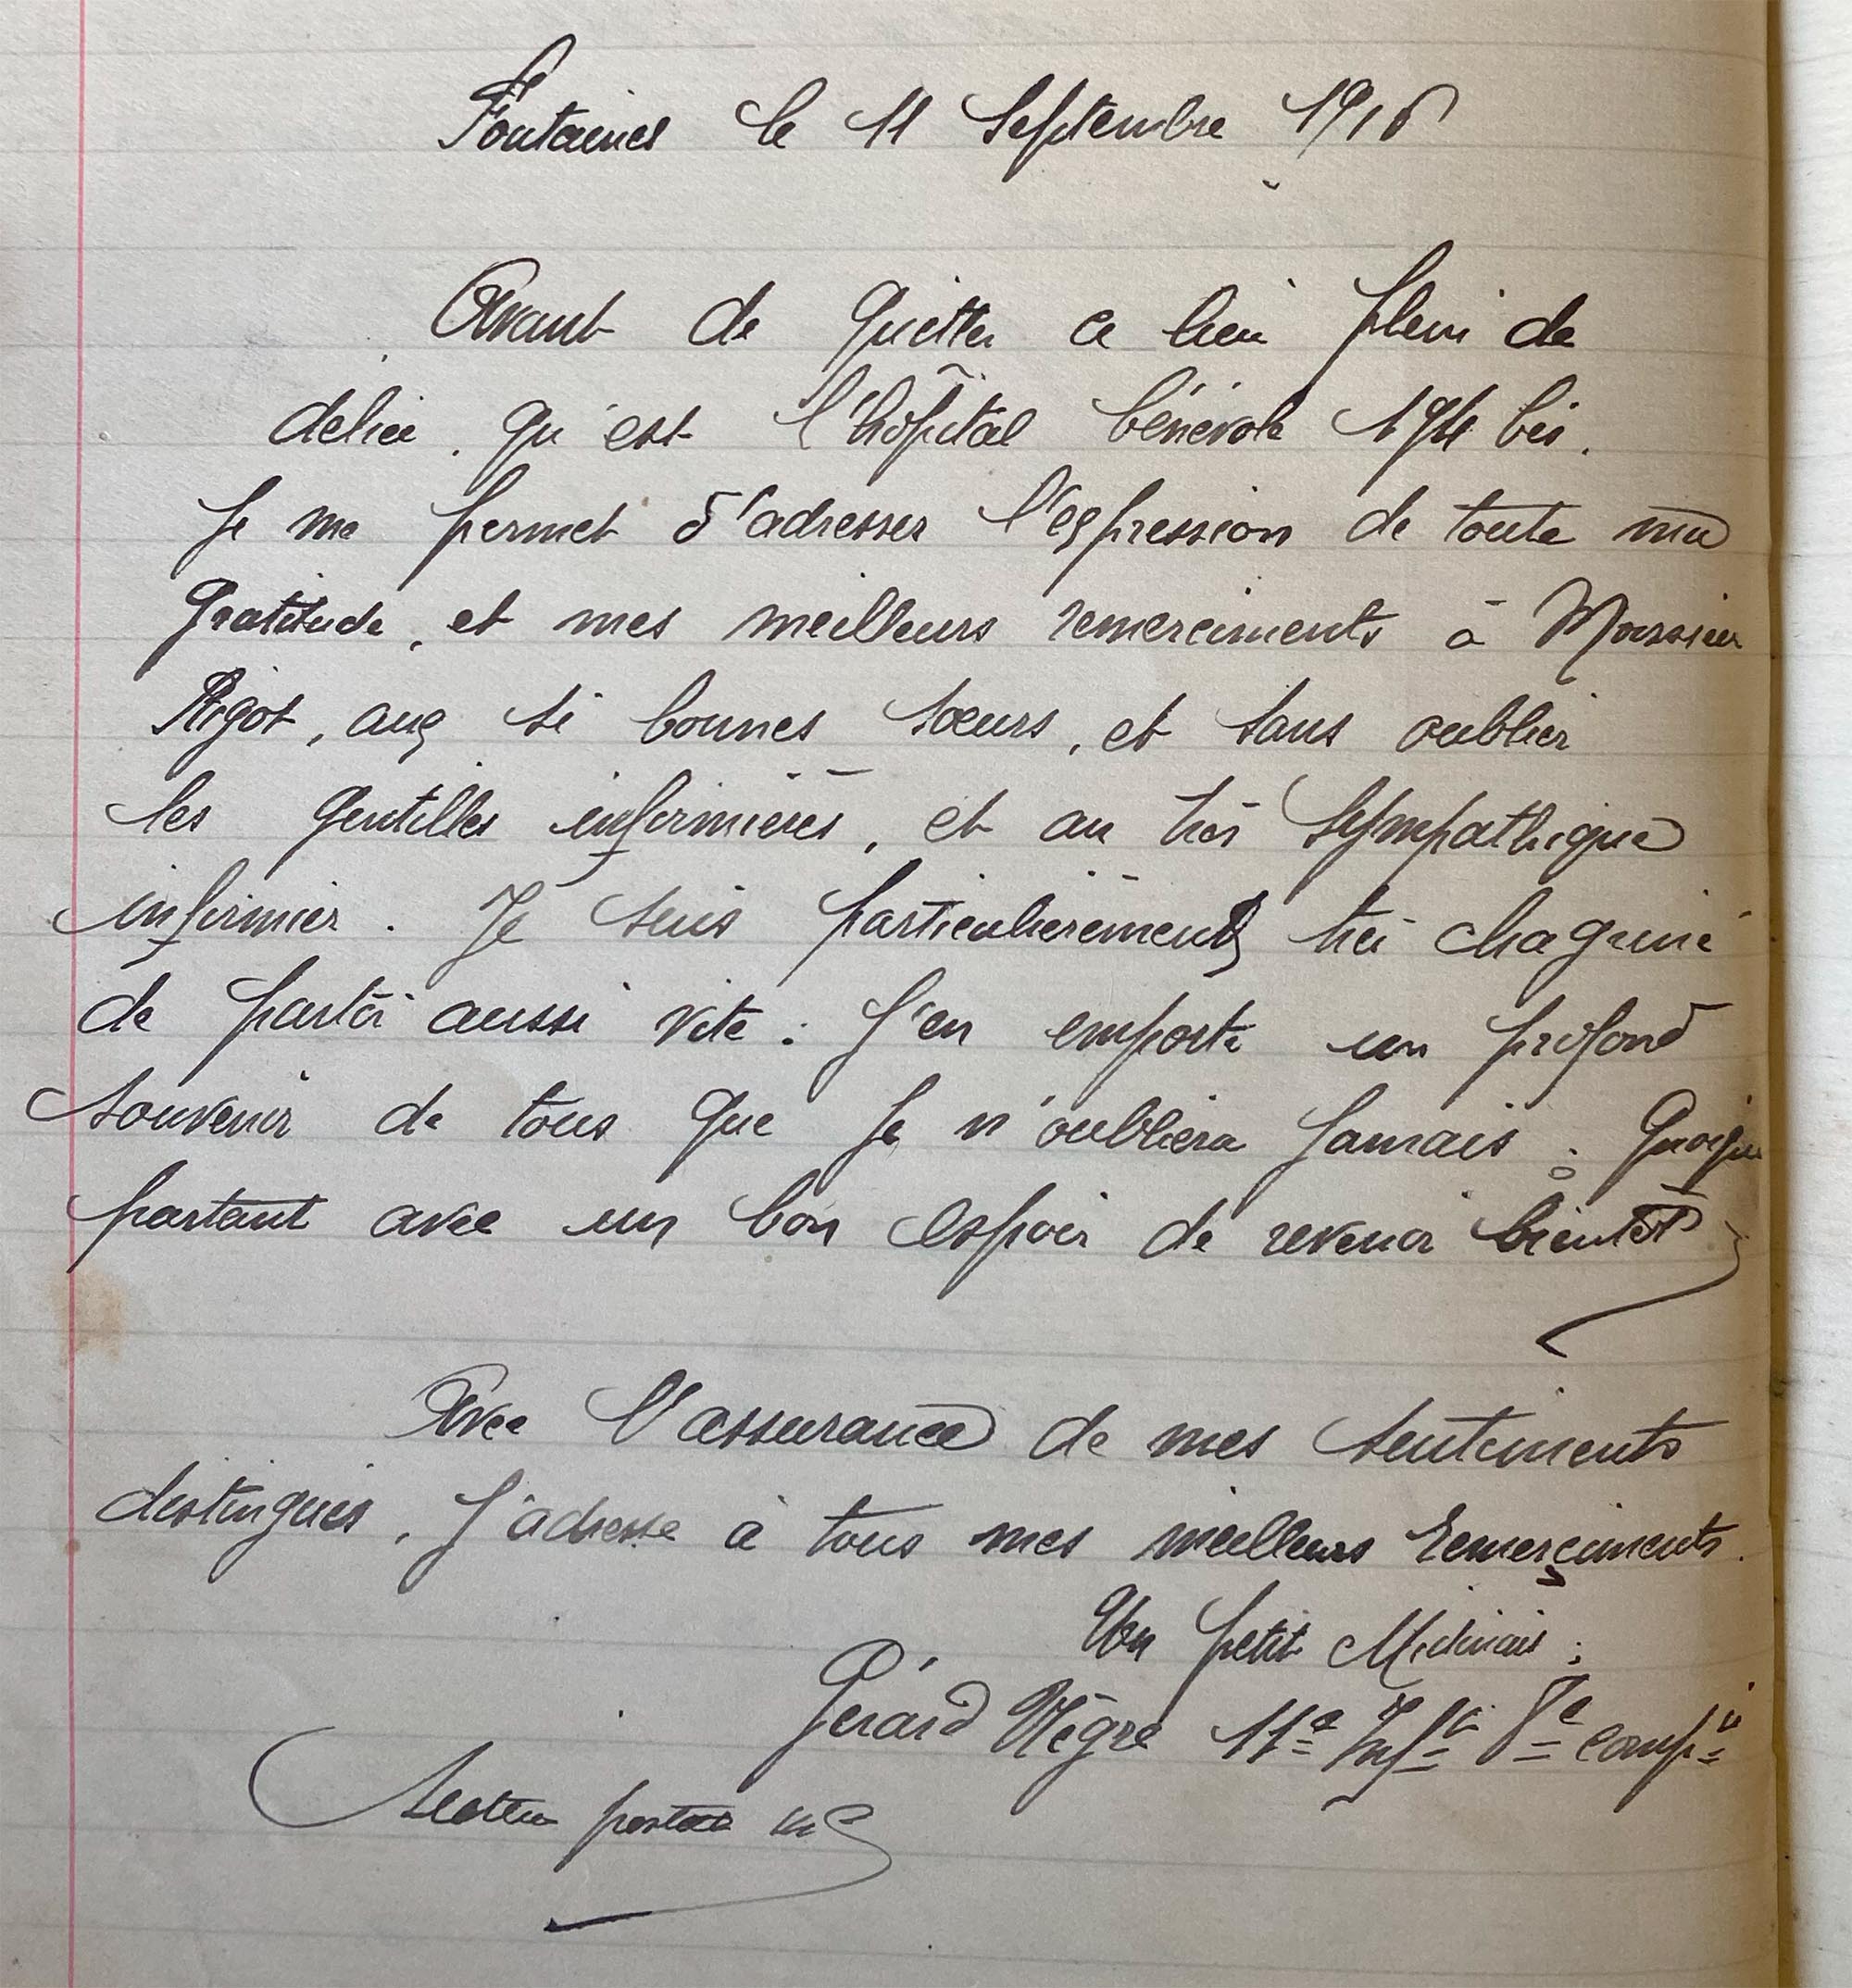 Fontaines le 11 Septembre 1916
Avant de quitter ce lieu plein de
délice, qu'est l'hôpital bénévole 194 bis.
Je me permet d'adresser l'expression de toute ma
gratitude, et mes meilleurs remerciments à Monsieur
Rigot, aux si bonnes sœurs, et sans oublier
les gentilles infirmières, et au très sympathique
infirmier. Je suis particulièrement très chagriné
de partir aussi vite. J'en emporte un profond
souvenir de tous que je n'oubliera jamais. Quoique
partant avec un bon espoir de revenir bientôt
Avec l'assurance de mes sentiments
distingués, J'adresse à tous mes meilleurs remerçiments.
Un petit
Gérard Nègre 11e Inf ie 8e Comp ie
Secteur postal